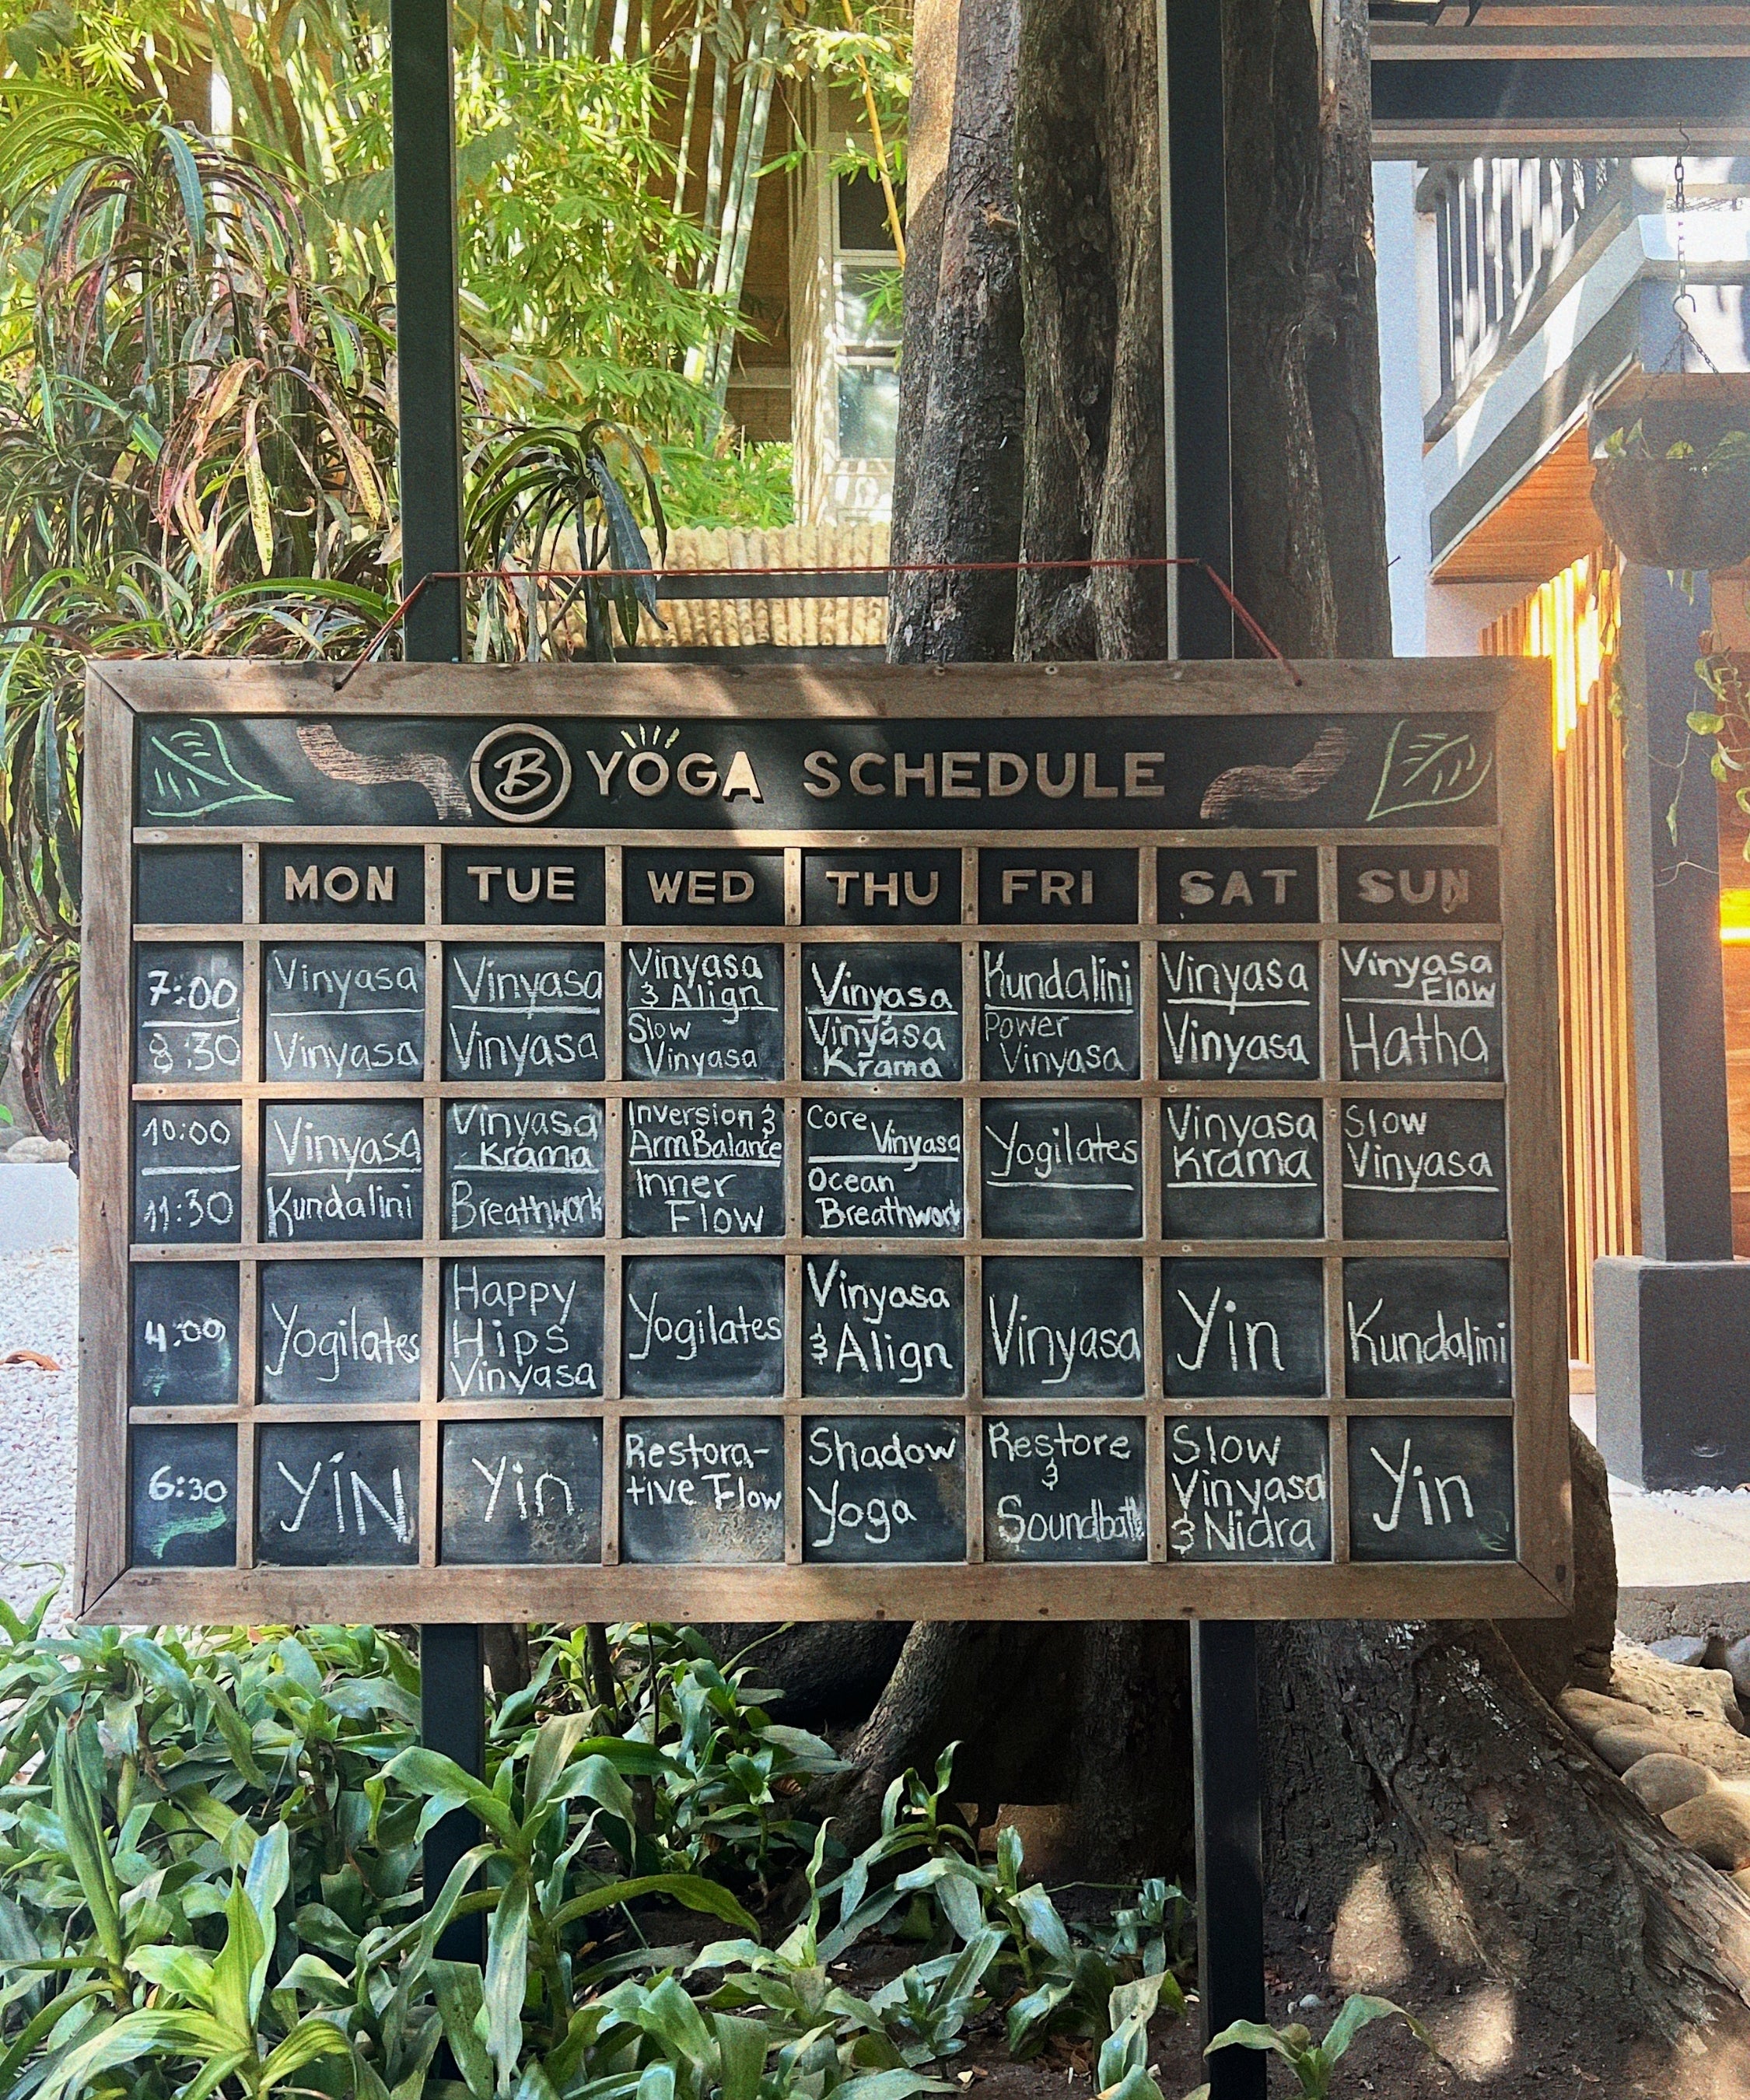 B YOGA SCHEDULE
MON TUE WED THU FRI SAT SUN
7:00
8:30
Vinyasa
Vinyasa
Vinyasa
Vinyasa
Vinyasa
& Align
Slow
Vinyasa
Vinyasa
Vinyasa
Krama
Kundalini
Power
Vinyasa
Vinyasa
Vinyasa
Vinyasa
Flow
Hatha
10:00
11:30
Vinyasa
Kundalini
Vinyasa
Krama
Breathwork
Inversion &
Arm Balance
Inner
Flow
Core
Vinyasa
Ocean
Breathwork
Yogilates
Vinyasa
Krama
Slow
Vinyasa
4:00
Yogilates
Happy
Hips
Vinyasa
Yogilates
Vinyasa
& Align
Vinyasa
Yin
Kundalini
6:30
YIN
Yin
Restora-
tive Flow
Shadow
Yoga
Restore
&
Soundbath
Slow
Vinyasa
& Nidra
Yin